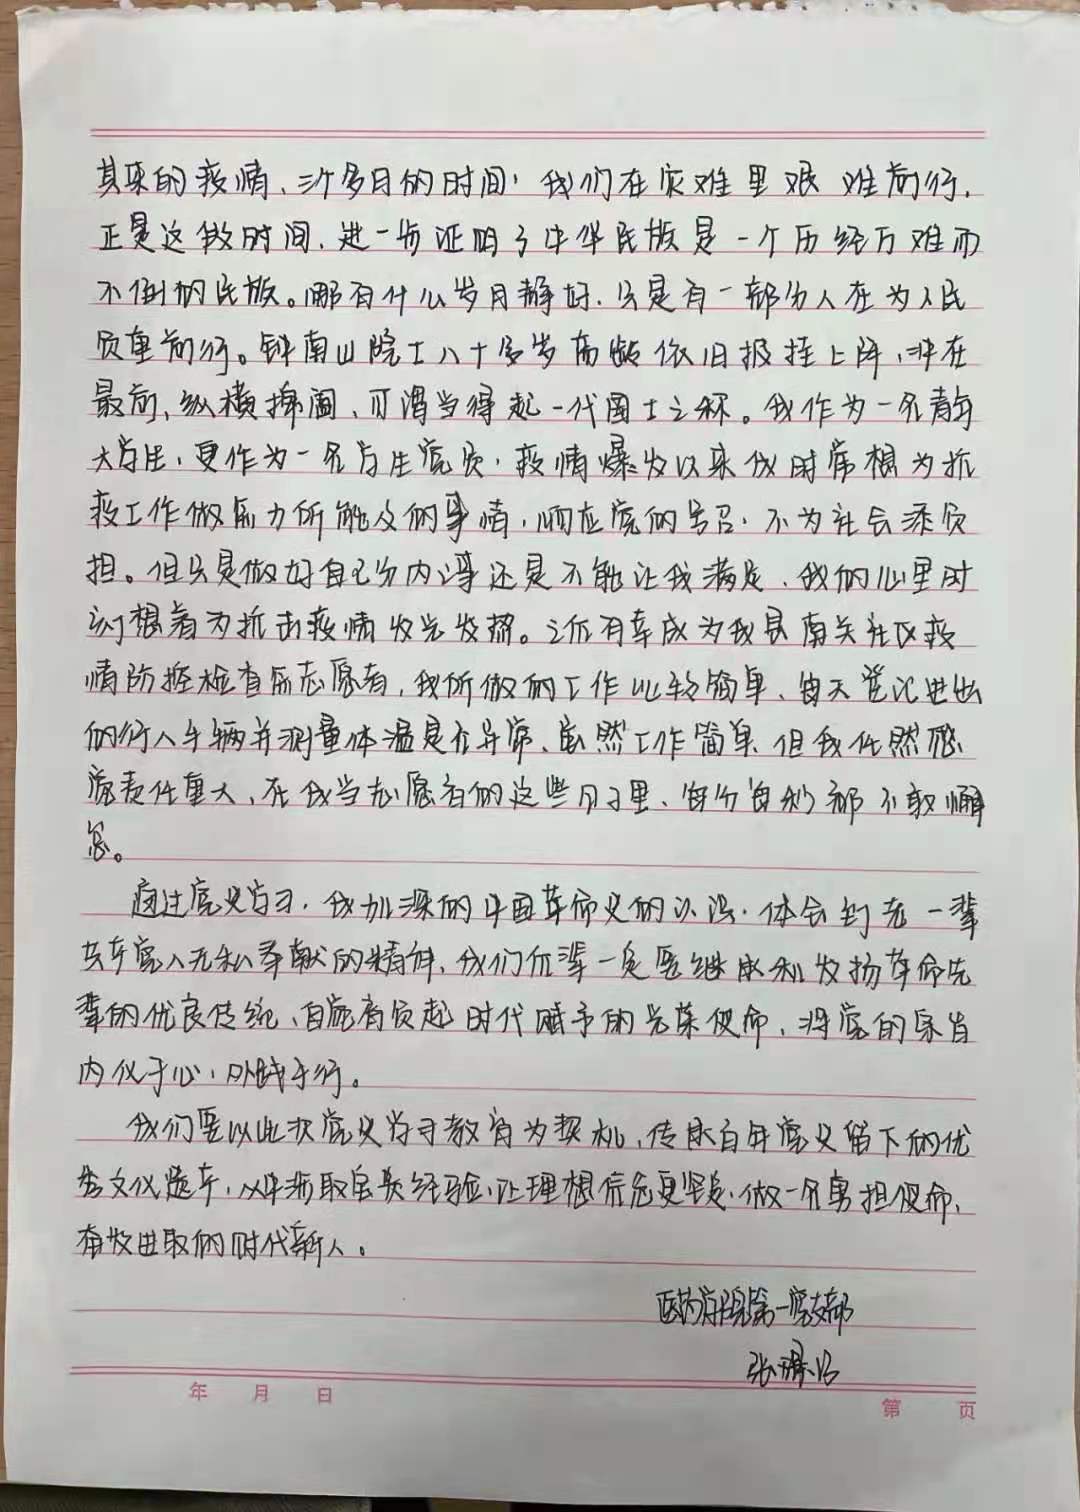 其来的疫情、三个多月的时间，我们在灾难里艰难前行，
正是这段时间，进一步证明了中华民族是一个历经万难而
不倒的民族。哪有什么岁月静好，只是有一部分人在为人民
负重前行。钟南山院士八十多岁高龄依旧披挂上阵，冲在
最前，纵横捭阖，可谓当得起一代国士之称。我作为一名青年
大学生，更作为一名学生党员，疫情爆发以来我时常想为抗
疫工作做所力所能及的事情，响应党的号召，不为社会添负
担。但只是做好自己分内之事还是不能让我满足，我的心里时
刻想着为抗击疫情发光发热。之后有幸成为我县南关社区疫
情防控检查所志愿者，我所做的工作比较简单，每天登记进出
的行人车辆并测量体温是否异常、虽然工作简单，但我任然感
觉责任重大、在我当志愿者的这些日子里、每分每秒都不敢懈
怠。
通过党史学习，我加深的中国革命史的认识，体会到老一辈
共产党人无私奉献的精神，我们后辈一定要继承和发扬革命先
辈的优良传统、自觉肩负起时代赋予的光荣使命，将党的宗旨
内化于心，外践于行。
我们要以此次党史学习教育为契机，传承百年党史留下的优
秀文化遗产，从中汲取宝贵经验，让理想信念更坚定，做一名勇担使命，
奋发进取的时代新人。
医药学院第一党支部
张
年 月 日
第 页